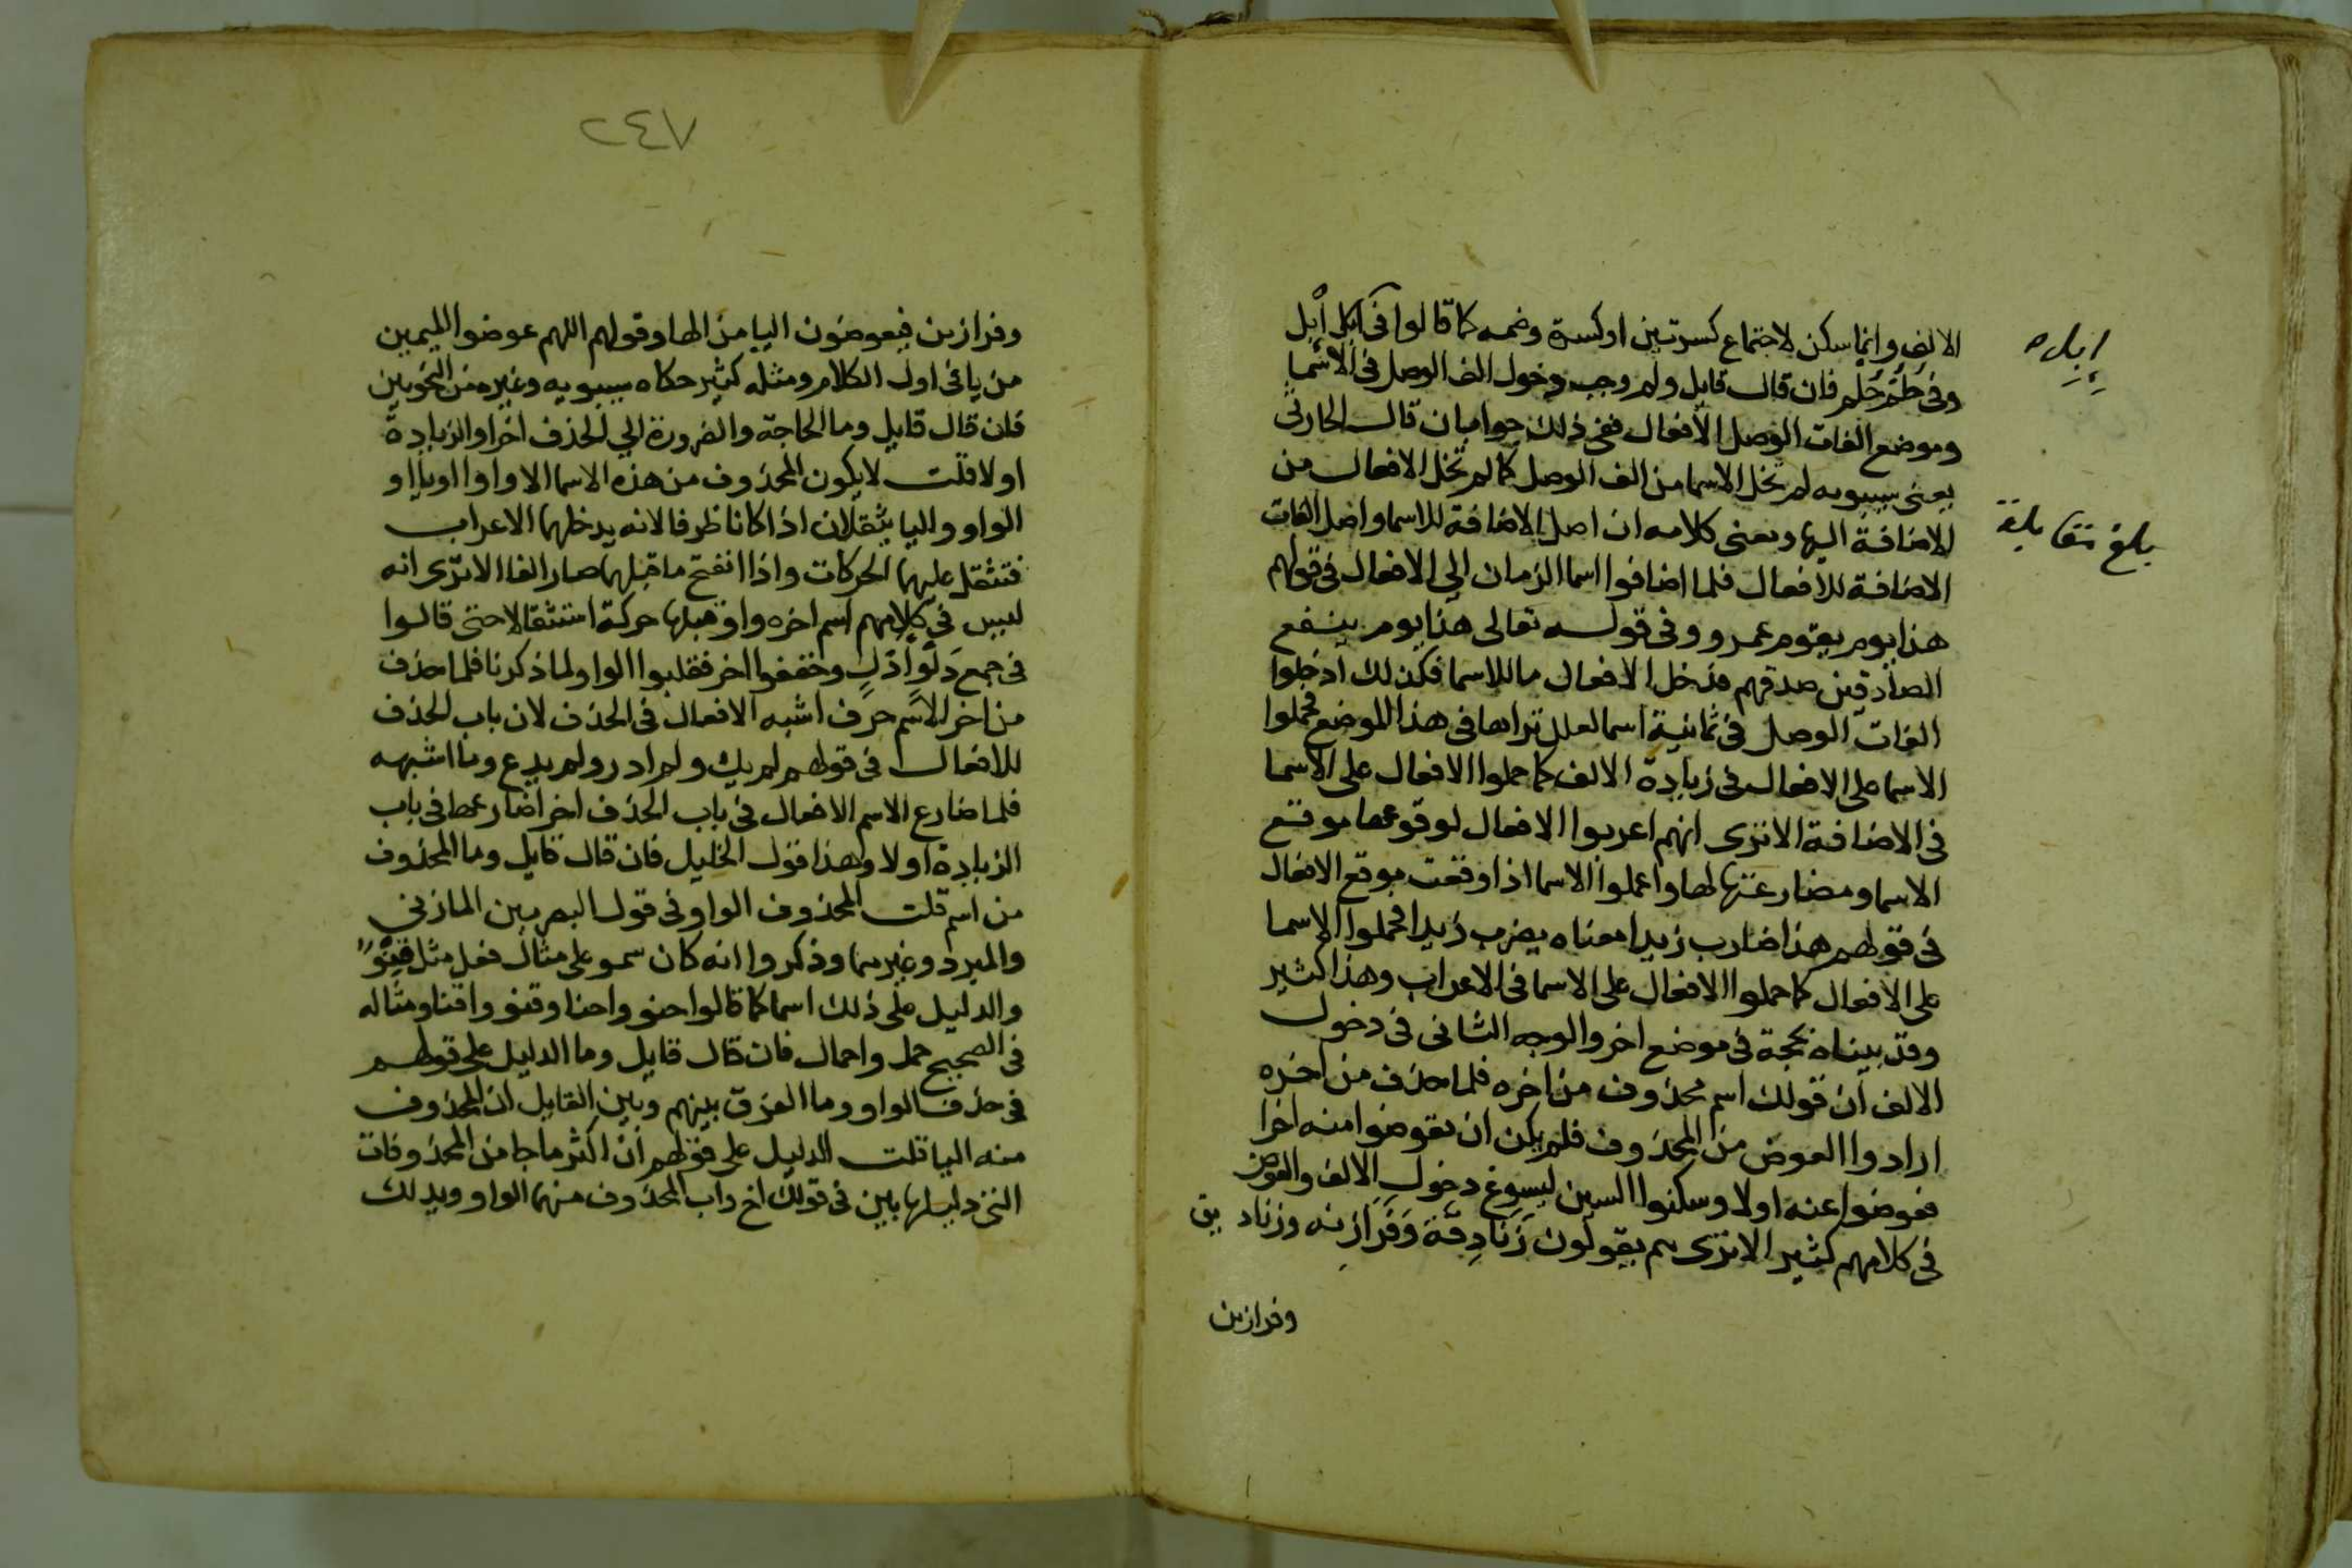 الالف وانما سكن لاجتماع كسرتين او كسرة وضمه كما قالوا فى ابل ابل
إبل ه
وفى حلم حلم فان قال قايل ولم وجب دخول الف الوصل فى الاسما
وموضع الفات الوصل الافعال ففى ذلك جوابان قال الحارثى
يعنى سيبويه لم تخل الاسما من الف الوصل كما لم تخل الافعال من
بلغ مقابلة
الاضافة اليها ومعنى كلامه ان اصل الاضافة للاسما واصل الفات
الاضافة للافعال فلما اضافوا اسما الزمان الي الافعال فى قولهم
هذا يوم يقوم عمرو وفى قوله تعالى هذا يوم ينفع
الصادقين صدقهم فدخل الافعال ما للاسما فكذلك ادخلوا
الفات الوصل فى ثمانية اسما لعلل تراها فى هذا الموضع فحملوا
الاسما على الافعال فى زيادة الالف كما حملوا الافعال على الاسما
فى الاضافة الا ترى انهم اعربوا الافعال لوقوعها موقع
الاسما ومضارعتها لها واعملوا الاسما اذا وقعت موقع الافعال
فى قولهم هذا ضارب زيدا معناه يضرب زيدا فحملوا الاسما
على الافعال كما حملوا الافعال على الاسما فى الاعراب وهذا كثير
وقد بيناه بحجة فى موضع اخر والوجه الثانى فى دخول
الالف ان قولك اسم محذوف من اخره فلما حذف من اخره
ارادوا العوض من المحذوف فلم يكن ان يعوضوا منه اخرا
فعوضوا عنه اولا وسكنوا السين ليسوغ دخول الالف والعوض
فى كلامهم كثير الا ترى هم يقولون زَنادِقَة وَفَرَازِنه وزناديق
وفرازين
٢٤٧
وفرازين فيعوضون اليا من الها وقولهم اللهم عوضوا الميمين
من يا فى اول الكلام ومثله كثير حكاه سيبويه وغيره من النحويين
فان قال قايل وما الحاجة والضرورة الي الحذف اخرا والزيادة
اولا قلت لا يكون المحذوف من هذه الاسما الا واوا او ياا و
الواو واليا يثقلان اذا كانا طرفا لانه يدخلهما الاعراب
فتثقل عليهما الحركات واذا انفتح ما قبلهما صار الفا الا ترى انه
ليس فى كلامهم اسم اخره واو قبلها حركة استثقالا حتى قالوا
فى جمع دلو ادل وخففوا اخر فقلبوا الواو لما ذكرنا فلما حذف
من اخر الاسم حرف اشبه الافعال فى الحذف لان باب الحذف
للافعال فى قولهم لم يك ولم ادر ولم يدع وما اشبهه
فلما ضارع الاسم الافعال فى باب الحذف اخرا ضارعها فى باب
الزيادة اولا وهذا قول الخليل فان قال قايل وما المحذوف
من اسم قلت المحذوف الواو فى قول البصريين المازنى
والمبرد وغيرهما وذكروا انه كان سمو على مثال فعل مثل قِنْوٌ
والدليل على ذلك اسما كما قالوا حنو واحنا وقنو واقنا ومثاله
فى الصحيح حمل واحمال فان قال قايل وما الدليل على قولهم
فى حذف الواو وما الفرق بينهم وبين القايل ان المحذوف
منه اليا قلت الدليل على قولهم ان اكثر ما جا من المحذوفات
التى دليلها بين فى قولك اخ واب المحذوف منهما الواو ويدلك